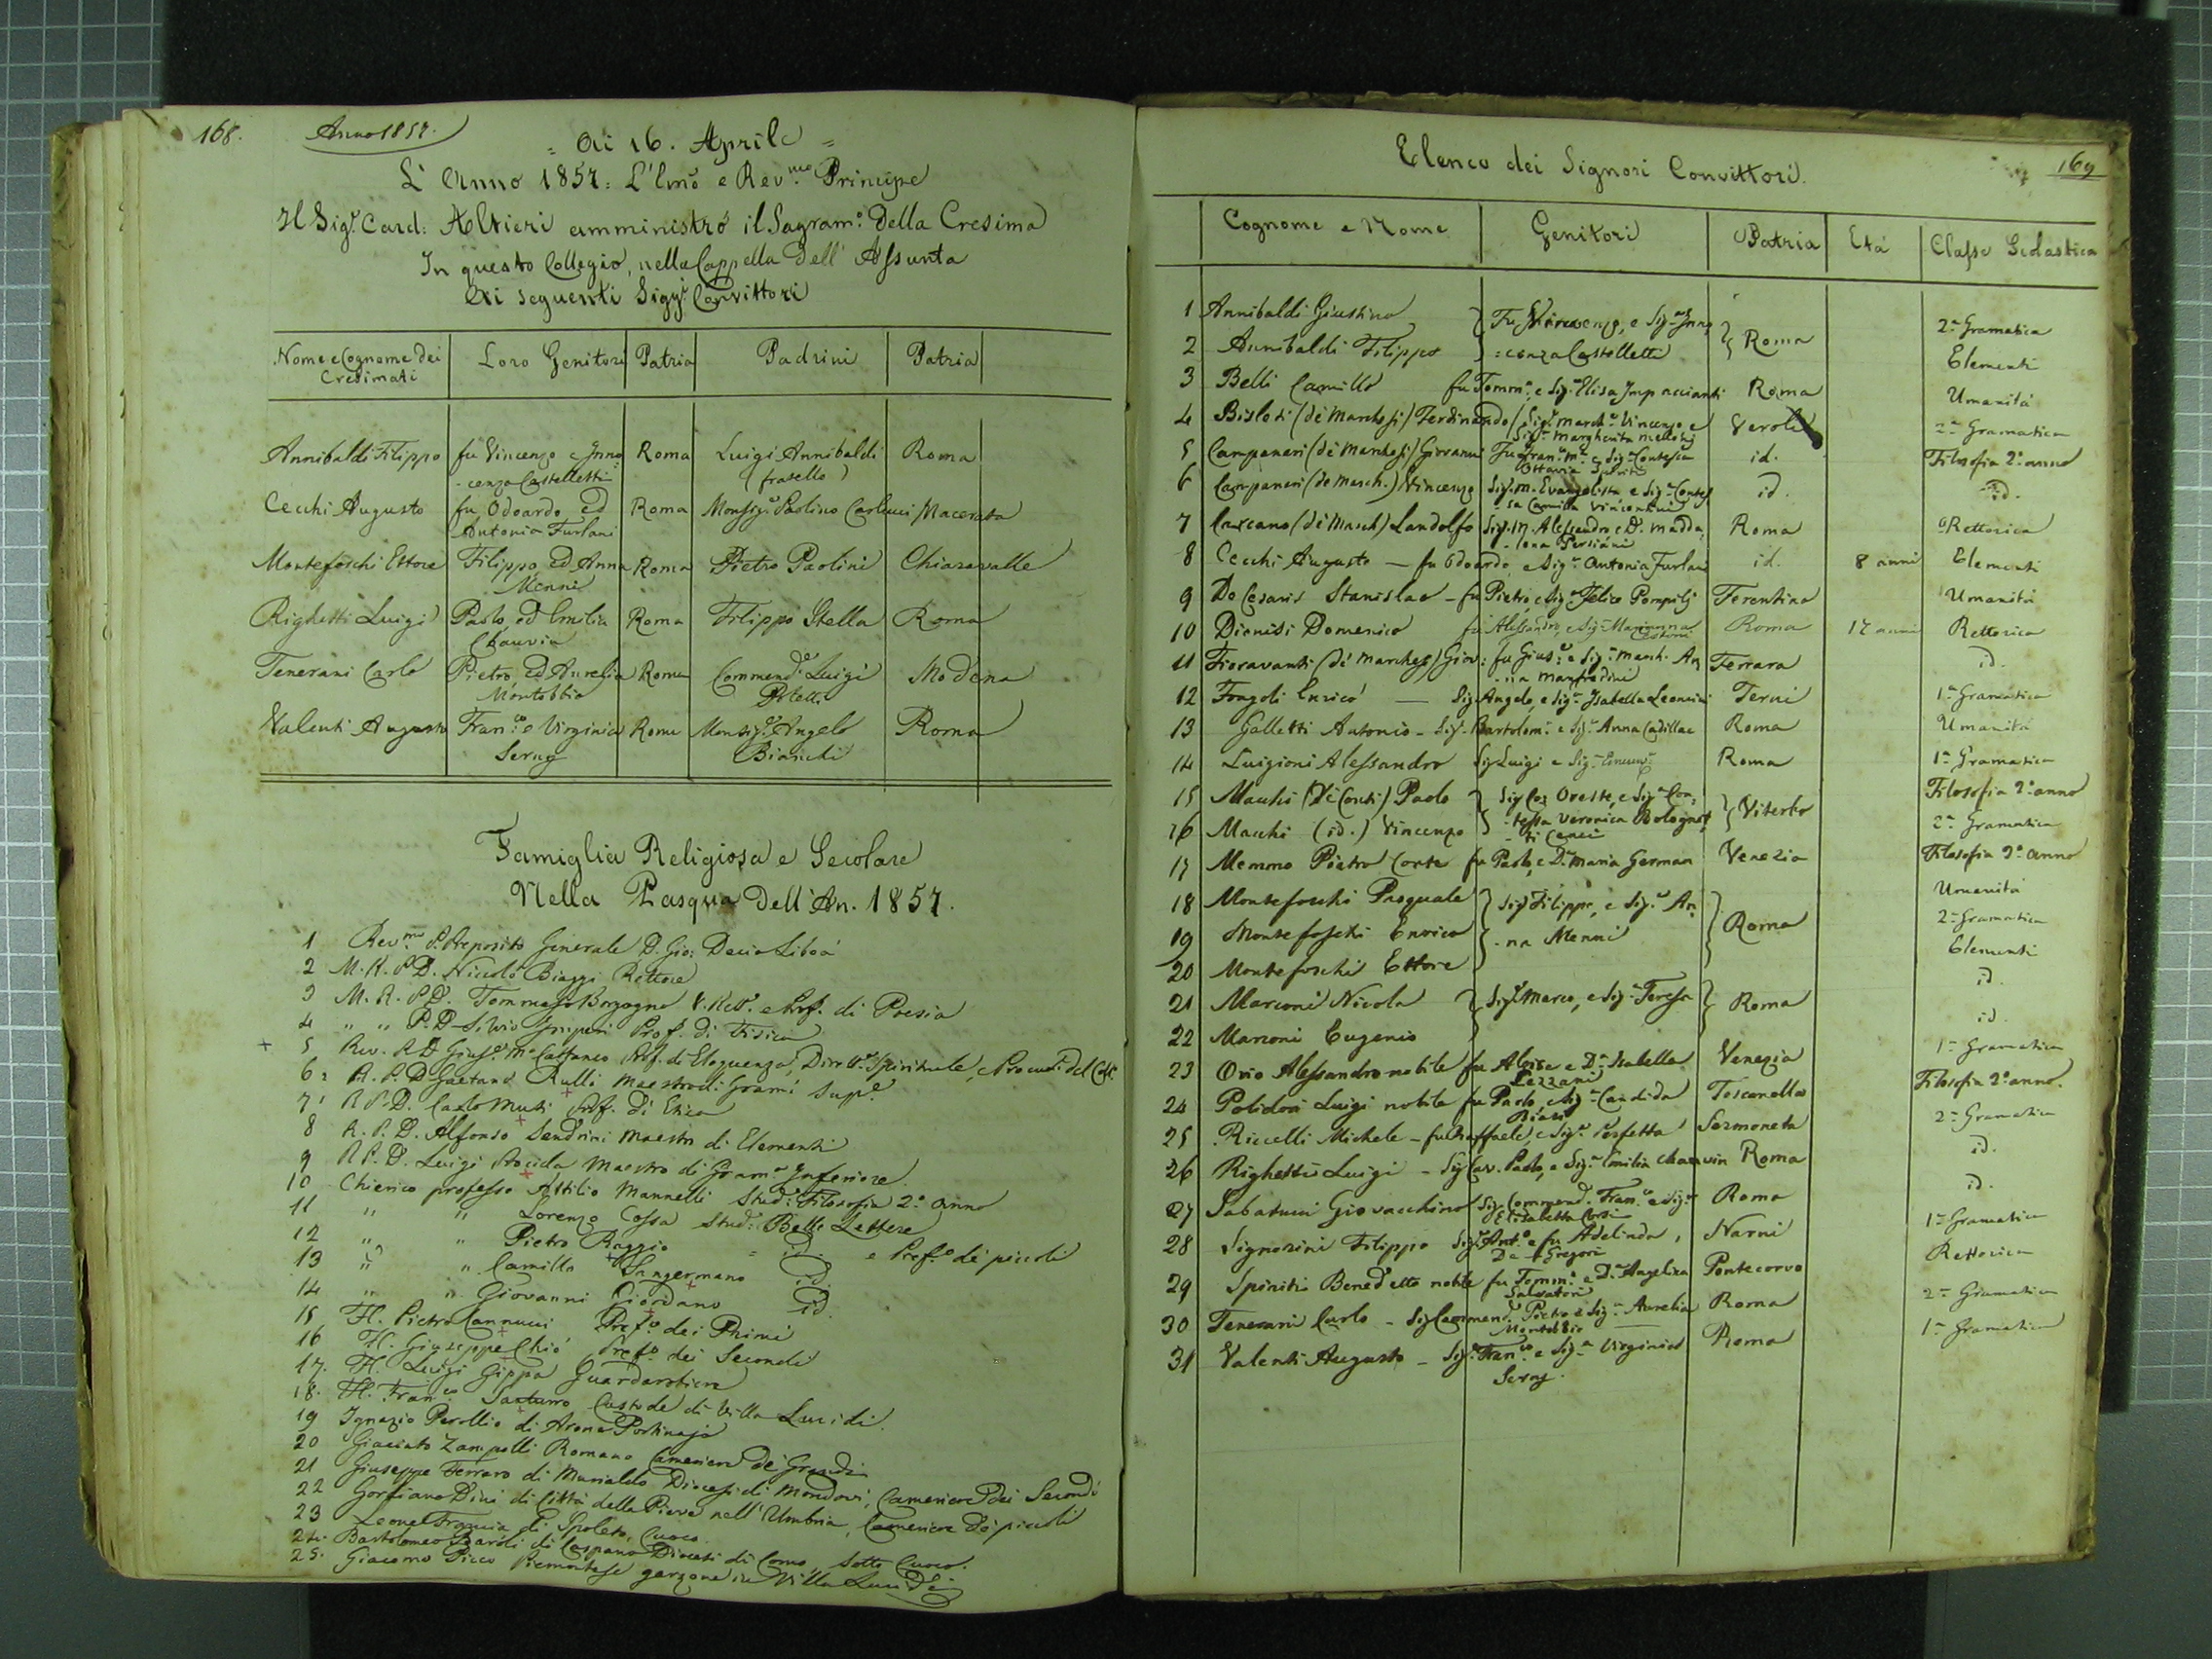 168.
Anno 1857.
= Ai 16. Aprile =
L'Anno 1857: L'Emo e Revmo. Principe
Il Sigr. Card: Altieri amministrò il Sagramo. Della Cresima
In questo Collegio, nella Cappella Dell' Assunta
Ai seguenti Sigg.ri Convittori
Nome e Cognome dei Cresimati | Loro Genitori | Patria | Padrini | Patria
Annibaldi Filippo | fu Vincenzo e Inno= | Roma | Luigi Annibaldi | Roma
-cenza Castelletti | (fratello)
Cecchi Augusto | fu Odoardo ed | Roma | Monsigr. Paolino Carlucci | Macerata
Antonia Furlani
Montefoschi Ettore | Filippo ed Anna | Roma | Pietro Paolini | Chiaravalle
Menni
Righetti Luigi | Paolo ed Emilia | Roma | Filippo Stella | Roma
Chauvin
Tenerani Carlo | Pietro ed Aurelia | Roma | Commend.e Luigi | Modena
Montobbio | Poletti
Valenti Augusto | Fran.co e Virginia | Roma | Monsigr. Angelo | Roma
Serny | Bianchi
Famiglia Religiosa e Secolare
Nella Pasqua Dell'An. 1857.
1 Rev.mo P. Preposito Generale D. Gio: Decio Liboà
2 M. R. P. D. Niccolò Biaggi Rettore
3 M. R. P. D. Tommaso Borgogno V. Rett.e e Prof. di Poesia
4 " " P. D. Silvio Imperi Prof. di Fisica
5 Rev. P. D. Gius.e M.a Cattaneo Prof. di Eloquenza, Dirett.e Spirituale, e Procur.e del Coll.
6 R. P. D. Gaetano Rulli Maestro di Gram.a Sup.e
7 R. P. D. Carlo Muti Prof. di Etica
8 R. P. D. Alfonso Sandrini Maestro di Elementi
9 R. P. D. Luigi Procida Maestro di Gram.a Inferiore.
10 Chierico professo Attilio Mannelli Stud: Filosofia 2.o anno
11 " " Lorenzo Cossa Stud: Belle Lettere
12 " " Pietro Raggio = id. e Pref.o de' piccoli
13 " " Camillo Sangermano id.
14 " " Giovanni Giordano id.
15 Fl. Pietro Cannucci Pref.o dei Primi
16 Fl. Giuseppe Chiò Pref.o dei Secondi
17. Fl. Luigi Gippa Guardarobiere
18. Fl. Fran.co Santurro Custode di Villa Lucidi.
19 Ignazio Perollio di Arona Portinajo
20 Giacinto Zampolli Romano Cameriere De' Grandi
21 Giuseppe Ferraro di Murialdo Diocesi di Mondovi, Cameriere dei Secondi
22 Gordiano Dini di Città della Pieve nell'Umbria, Cameriere de' piccoli
23 Leone Francia di Spoleto, Cuoco
24. Bartolomeo Bardi di Caspano Diocesi di Como, Sotto Cuoco.
25. Giacomo Picco Piemontese garzone in Villa Lucidi
169
Elenco dei Signori Convittori.
Cognome e Nome | Genitori | Patria | Età | Classe Scolastica
1 Annibaldi Giustino | Fu Vincenzo, e Sig.a Inno | Roma | 2.a Gramatica
2 Annibaldi Filippo | =cenza Castelletti | Elementi
3 Belli Camillo | fu Tomm.o e Sig.a Elisa Impaccianti | Roma | Umanità
4 Bisleti (de' Marchesi) Ferdinando | Sig.r March.e Vincenzo e | Veroli | 2.a Gramatica
Sig.a Margherita Mellonj
5 Campanari (de' Marchesi) Giovanni | Fu Fran.o M.a e Sig.a Contessa | id. | Filosofia 2.o anno
Ottavia Spiriti
6 Campanari (de March.) Vincenzo | Sig. M. Evangelista e Sig.a Contes | id. | id.
-sa Camilla Vincentini
7 Luscano (di March) Landolfo | Sig. M. Alessandro e D. Madda | Roma | Rettorica
-lena Persiani
8 Cecchi Augusto — fu Odoardo e Sig.a Antonia Furlani | id. | 8 anni | Elementi
9 De Cesaris Stanislao - fu Pietro, e Sig.a Felice Pompilj | Ferentino | Umanità
10 Dionisi Domenico | fu Alessandro, e Sig.a Marianna | Roma | 17 anni | Rettorica
11 Fioravanti (de' Marchesi) Giov: fu Gius.e e Sig.a March. An | Ferrara | id.
-na Manfredini
12 Fongoli Enrico — Sig. Angelo, e Sig.a Isabella Leonini | Terni | 1.a Gramatica
13 Galletti Antonio - Sig. Bartolom.o e Sig.a Anna Cadillac | Roma | Umanità
14 Luigioni Alessandro | Sig Luigi e Sig.a | Roma | 1.a Gramatica
15 Macchi (De' Conti) Paolo | Sig Cav Oreste, e Sig.a Con= | Viterbo | Filosofia 2.o anno
16 Macchi (id.) Vincenzo | -tessa Veronica Bolognet | 2.a Gramatica
-ti Cenci
17 Memmo Pietro Conte | fu Paolo, e D.a Maria German | Venezia | Filosofia 2.o anno
18 Montefoschi Pasquale | Sig Filippo, e Sig.a An | Roma | Umanità
19 Montefoschi Enrico | -na Menni | 2.a Gramatica
20 Montefoschi Ettore | Elementi
21 Marconi Nicola | Sig.r Marco, e Sig.a Teresa | Roma | id.
22 Marconi Eugenio | id.
23 Orio Alessandro nobile | fu Alvise e D.a Isabella | Venezia | 1.a Gramatica
Lezzani
24 Polidori Luigi nobile | fu Paolo, e Sig.a Candida | Toscanella | Filosofia 2.o anno.
25 Riccelli Michele - fu Raffaele, e Sig.a Perfetta | Sermoneta | 2.a Gramatica
26 Righetti Luigi - Sig Cav. Paolo, e Sig.a Emilia Chauvin | Roma | id.
27 Sabatucci Giovacchino | Sig. Commend. Fran.o e Sig.a | Roma | id.
Elisabetta Corsi
28 Signorini Filippo | Sig. Ant.o e fu Adelinda, | Narni | 1.a Gramatica
De Gregori
29 Spiriti Benedetto nobile | fu Tomm.o e D.a Angelica | Pontecorvo | Rettorica
Salvatori
30 Tenerani Carlo - Sig Commend. Pietro e Sig.a Aurelia | Roma | 2.a Gramatica
Montobbio
31 Valenti Augusto - Sig. Fran.co e Sig.a Virginia | Roma | 1.a Gramatica
Serny.